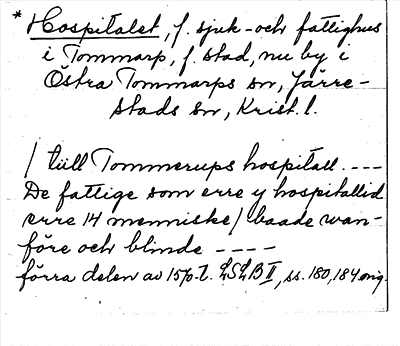 * Hospitalet, f. sjuk- och fattighus
i Tommarp, f. stad, nu by i
Östra Tommarps sn, Järre-
stads sn, Krist. l.
/ till Tommerups hospitall. ---
De fattige som erre y hospitallid
erre 14 menniske / baade wan-
före och blinde ----
förra delen av 15/0-t. LSLB II, ss. 180, 184 orig.